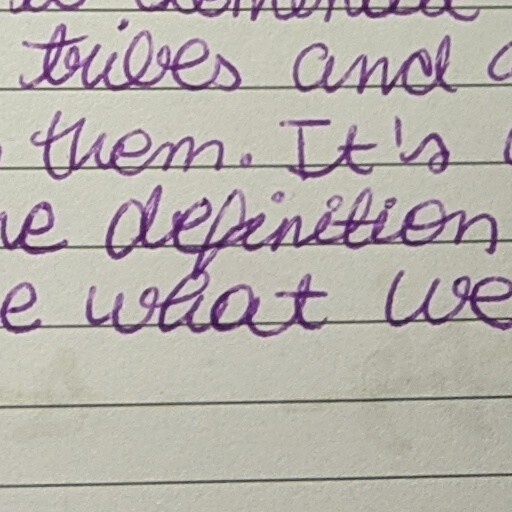 tribes and
them. It's
definition
what we